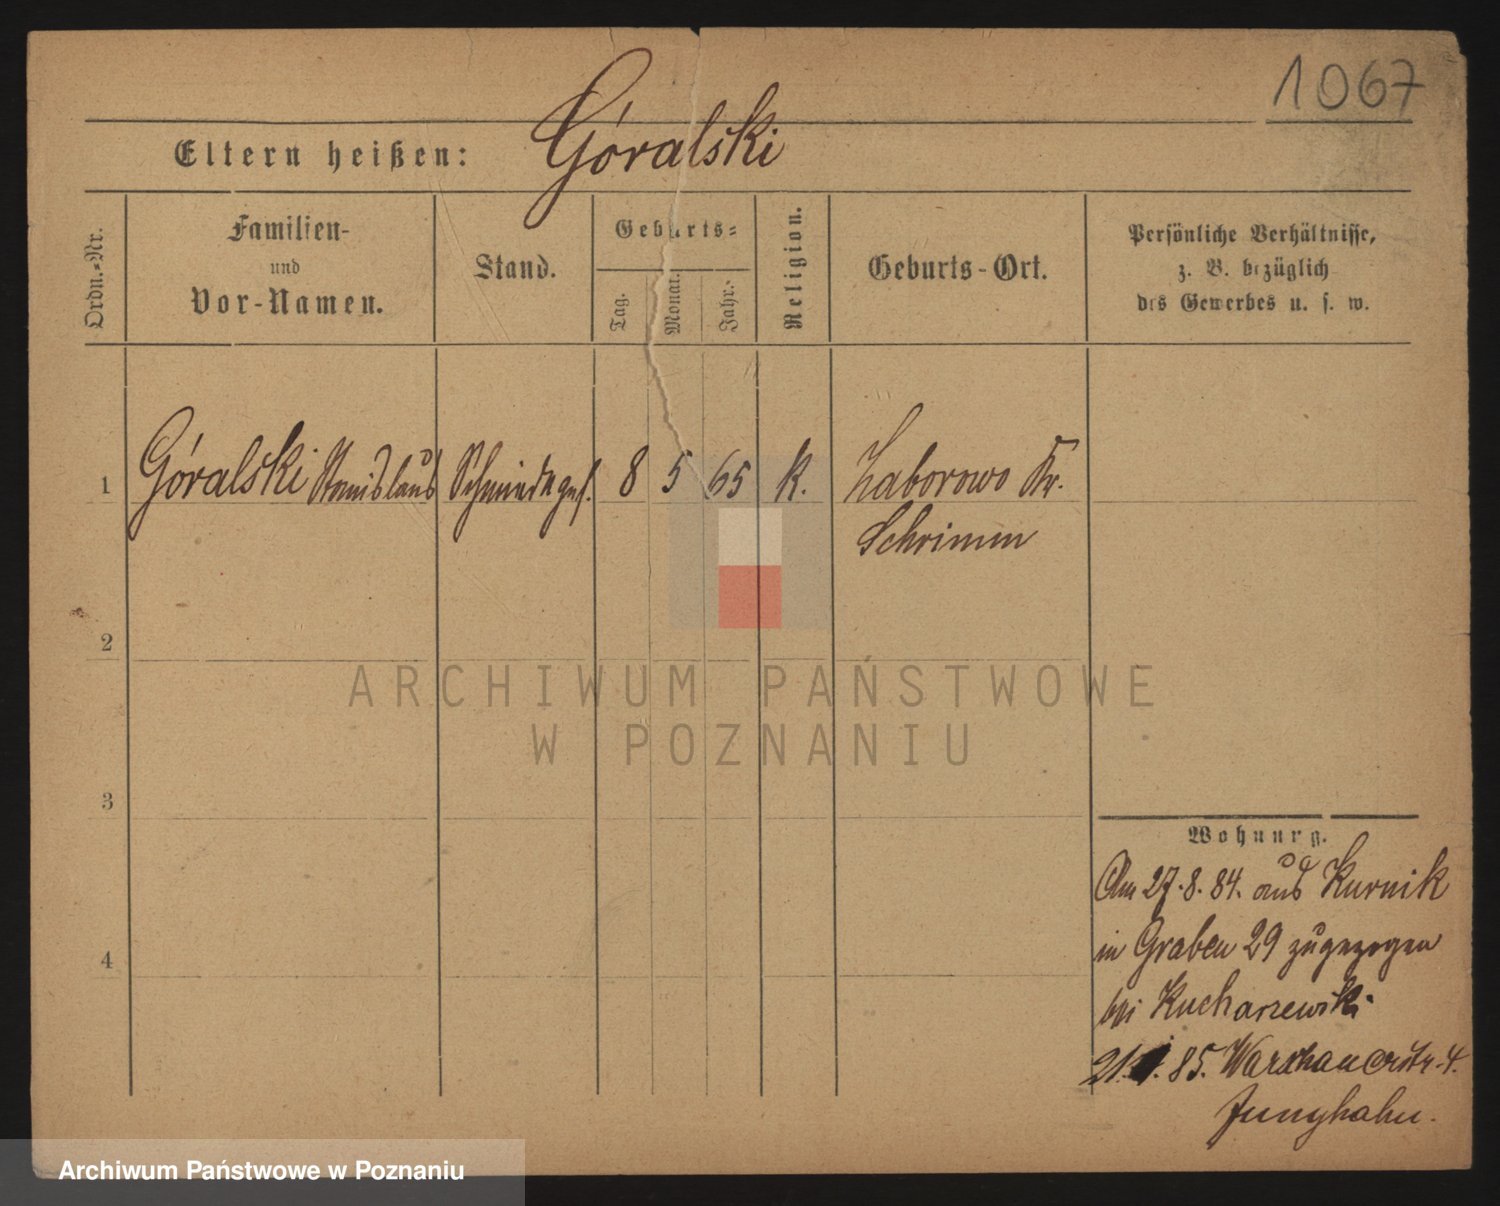 1067
Eltern heißen: Góralski
Ordn.-Nr.
Familien-
und
Vor-Namen.
Stand.
Geburts-
Tag.
Monat.
Jahr.
Religion.
Geburts-Ort.
Persönliche Verhältnisse,
z. B. bezüglich
des Gewerbes u. s. w.
1 Góralski Stanislaus Schmiedeges. 8 5 65 k. Zaborowo Kr.
Schrimm
2
3
4
ARCHIWUM PAŃSTWOWE
W POZNANIU
Wohnung.
Am 27.8.84. aus Kurnik
in Graben 29 zugezogen
bei Kucharzewski
21. 85. Warschauerstr. 4.
Junghahn.
Archiwum Państwowe w Poznaniu